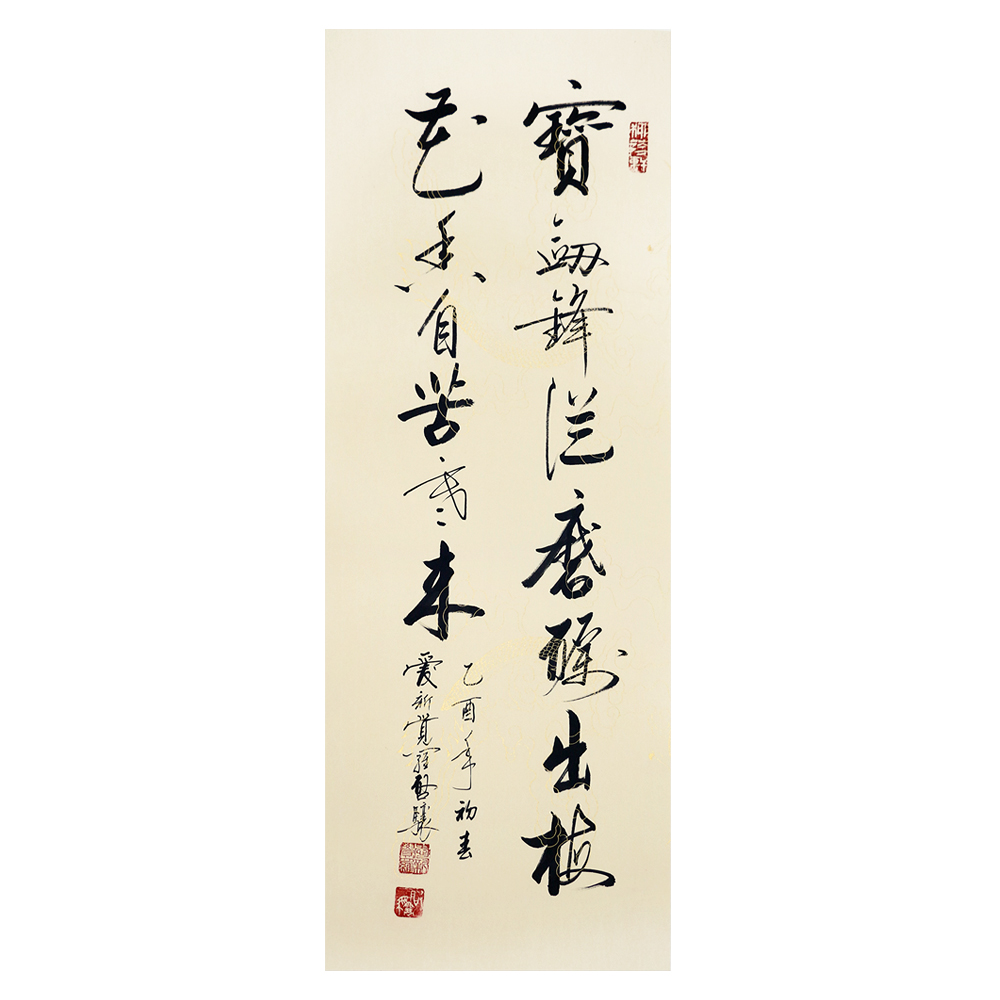 寶劔鋒從磨礪出梅
花香自苦寒来
乙酉年初春
愛新覚羅啓驤